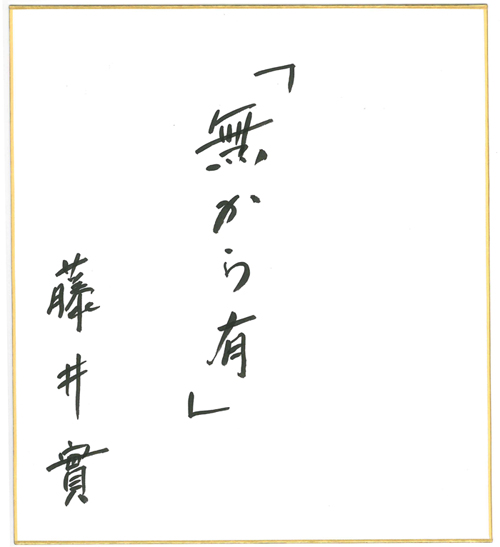 「無から有」
藤井實